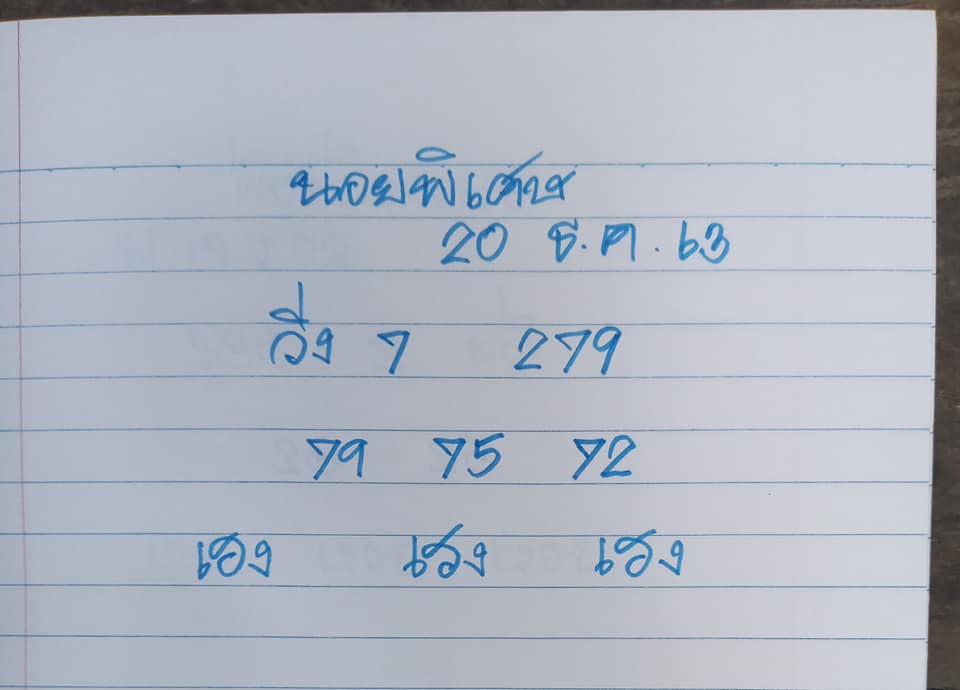 นอยพิเศษ
20 ธ.ค. 63
วิ่ง 7 279
79 75 72
เฮง เฮง เฮง